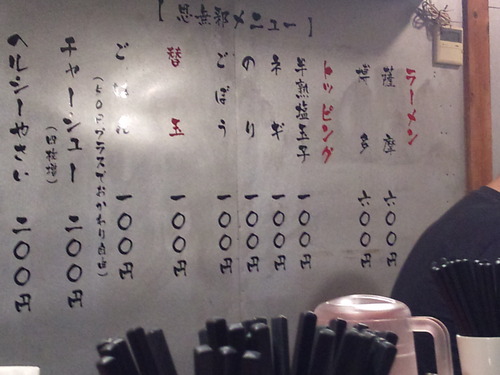 【思案部メニュー】
ラーメン
薩摩 六〇〇円
博多 六〇〇円
トッピング
半熟塩玉子 一〇〇円
ネギ 一〇〇円
のり 一〇〇円
ごぼう 一〇〇円
替玉 一〇〇円
ごはん 一〇〇円
(+50円プラスでおかわり自由)
チャーシュー 二〇〇円
ヘルシーやさい 二〇〇円